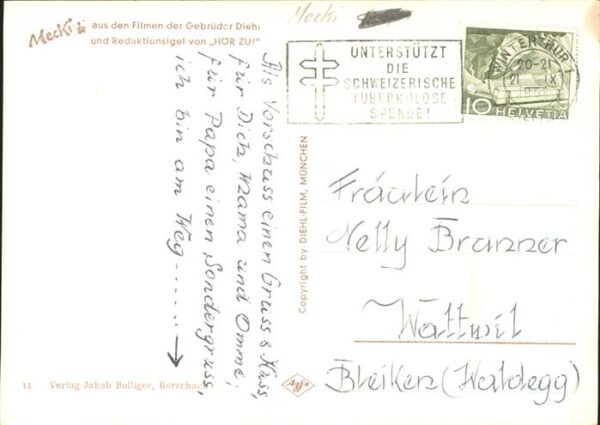 Mecki aus den Filmen der Gebrüder Diehl
und Redaktionsigel von „HÖR ZU!"
Mecki
UNTERSTÜTZT
DIE
SCHWEIZERISCHE
TUBERKULOSE
SPENDE!
WINTERTHUR 1
20-21
21 IX
10 HELVETIA
Als Vorschuss einen Gruss & Kuss,
für Dich, Mama und Omme;
für Papa einen Sondergruss,
ich bin am Weg......→
Copyright by DIEHL-FILM, MÜNCHEN
Fräulein
Nelly Brunner
Wattwil
Bleiken (Waldegg)
13 Verlag Jakob Bolliger, Rorschach